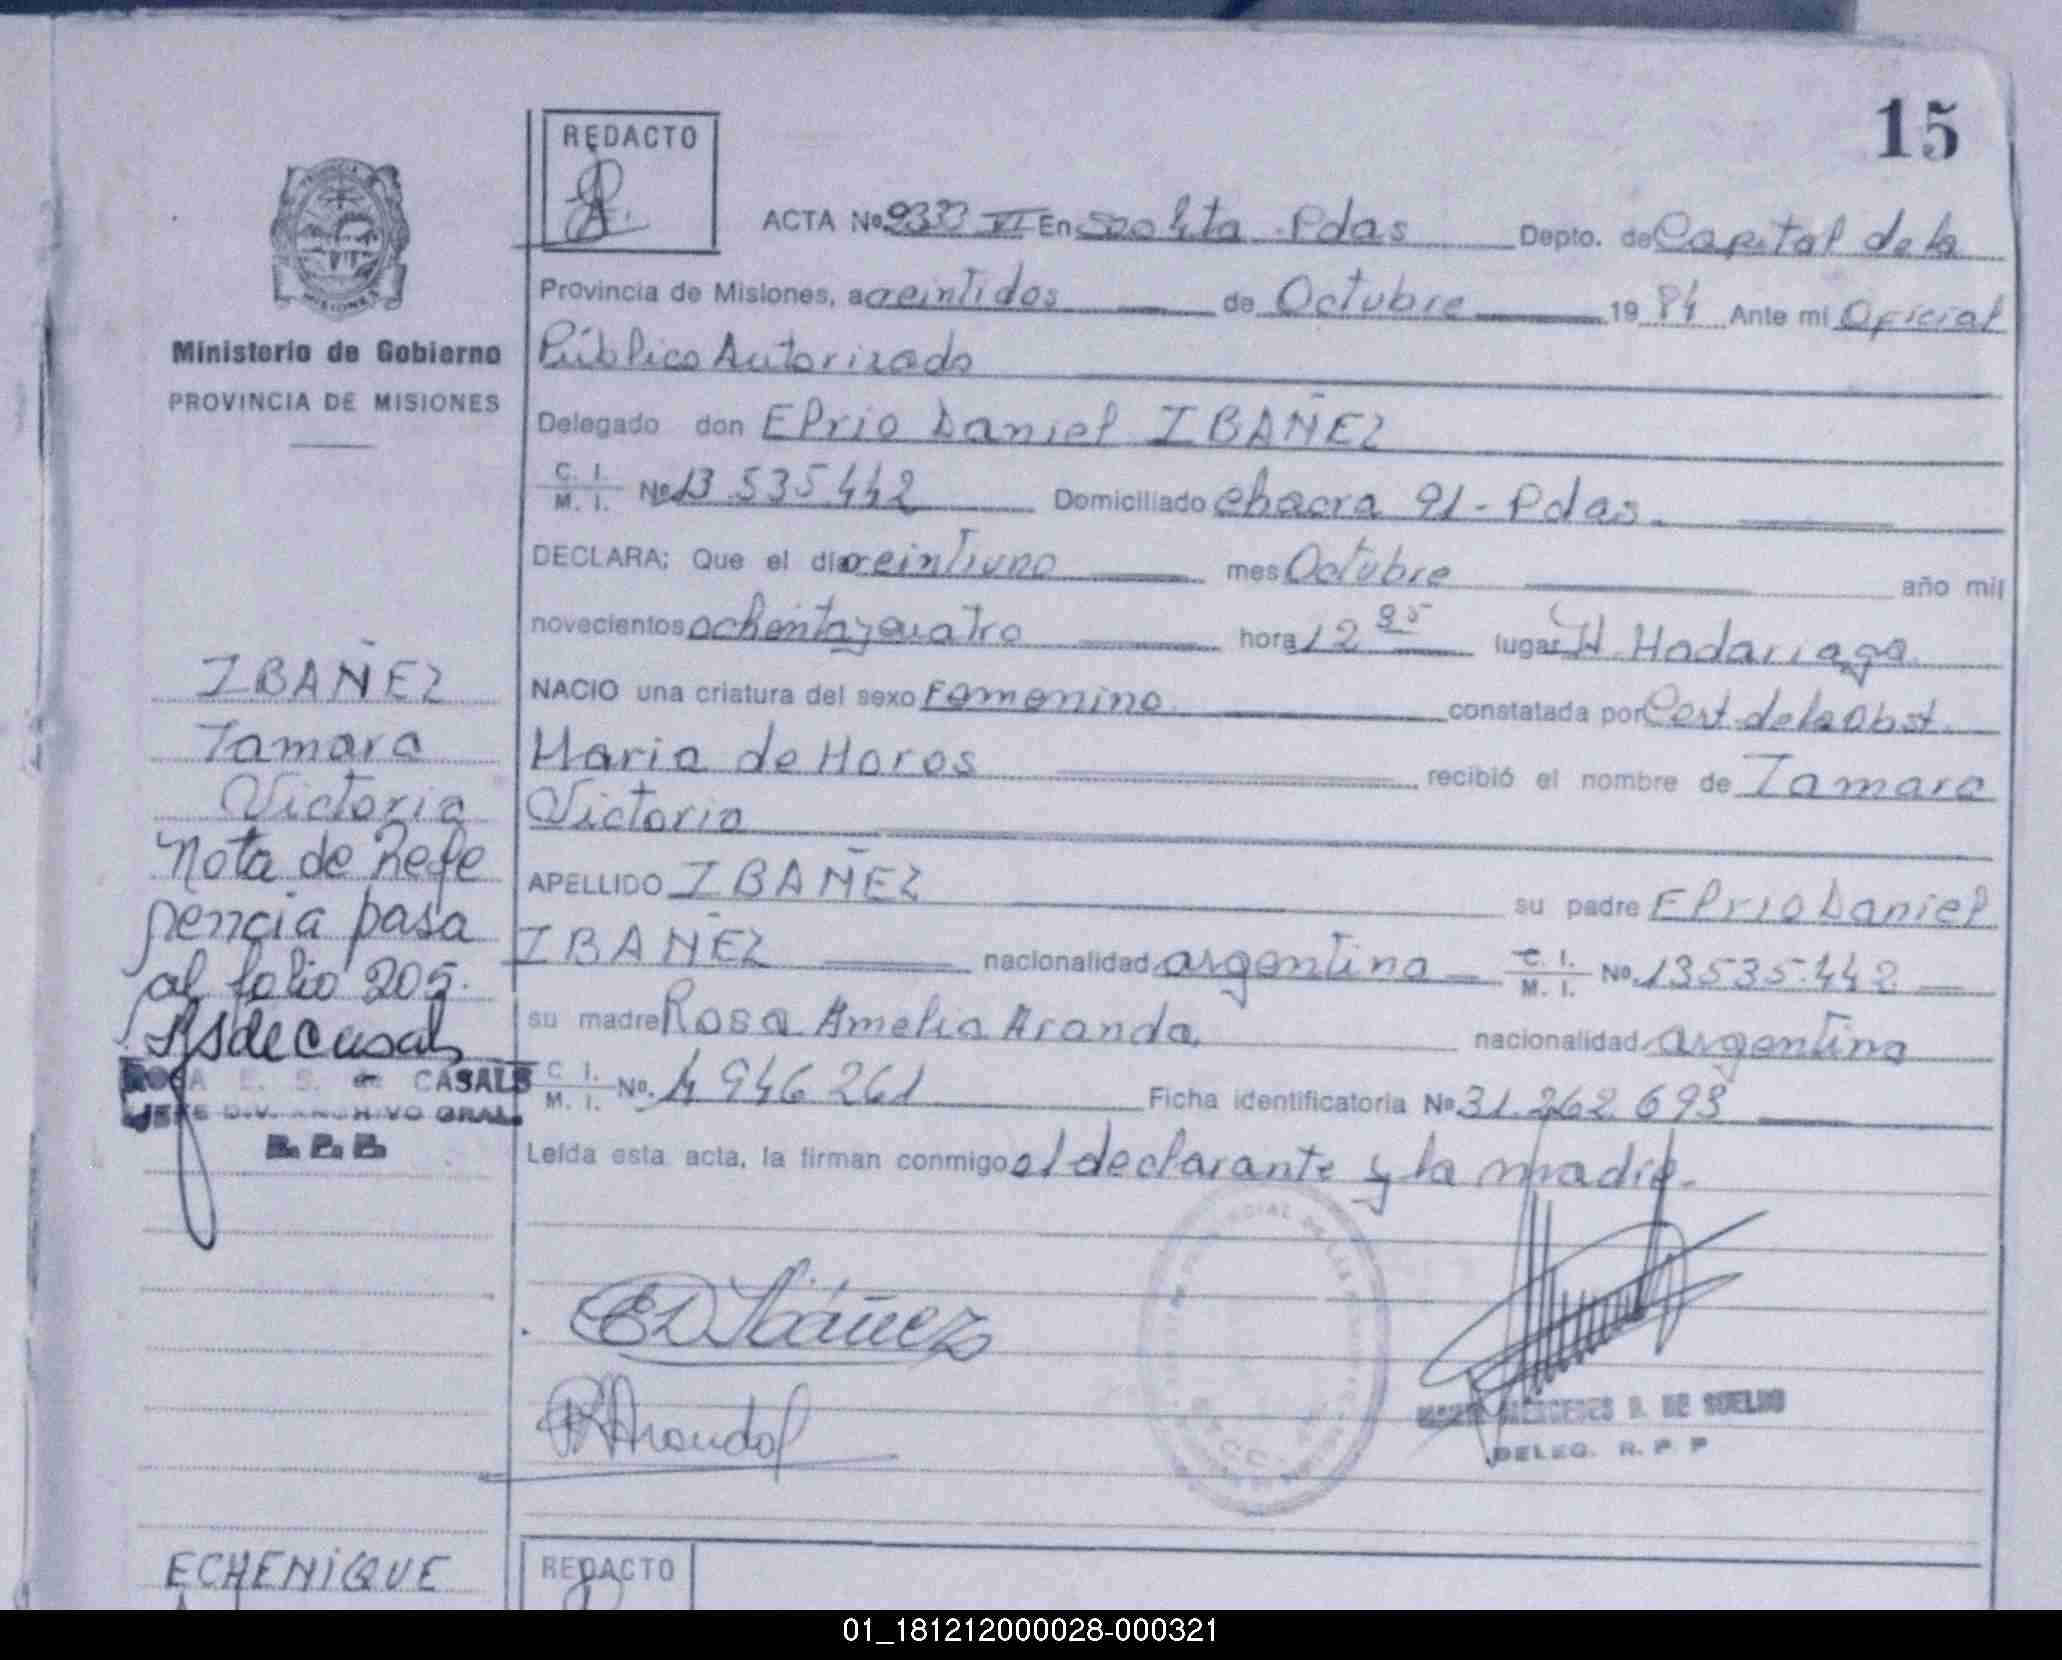 15
REDACTO
ACTA Nº 9333 VI En Secc 4ta Pdas Depto. de Capital de la
Provincia de Misiones, a veintidos de Octubre 19 84 Ante mi Oficial
Público Autorizado
Delegado don Elrio Daniel IBAÑEZ
C. I.
M. I. Nº 13.535.442 Domiciliado chacra 91 - Pdas.
DECLARA; Que el día veintiuno mes Octubre año mil
novecientos ochenta y cuatro hora 12 35 lugar H. Madariaga
NACIO una criatura del sexo Femenino constatada por Cert. de la Obst.
Maria de Horos recibió el nombre de Tamara
Victoria
APELLIDO IBAÑEZ su padre Elrio Daniel
IBAÑEZ nacionalidad argentina C. I. M. I. Nº. 13535.442
su madre Rosa Amelia Aranda nacionalidad argentina
C. I.
M. I. Nº. 4 946 261 Ficha identificatoria Nº 31.262.693
Leída esta acta, la firman conmigo el declarante y la madre.
ED Ibáñez
RAranda
MERCEDES R. DE SUELDO
DELEG. R. P. P
Ministerio de Gobierno
PROVINCIA DE MISIONES
IBAÑEZ
Tamara
Victoria
Nota de Refe
rencia pasa
al folio 205.
RSdeCasals
ROSA E. S. de CASALS
JEFE DIV. ARCHIVO GRAL.
R. P. P.
ECHENIQUE
REDACTO
01_181212000028-000321